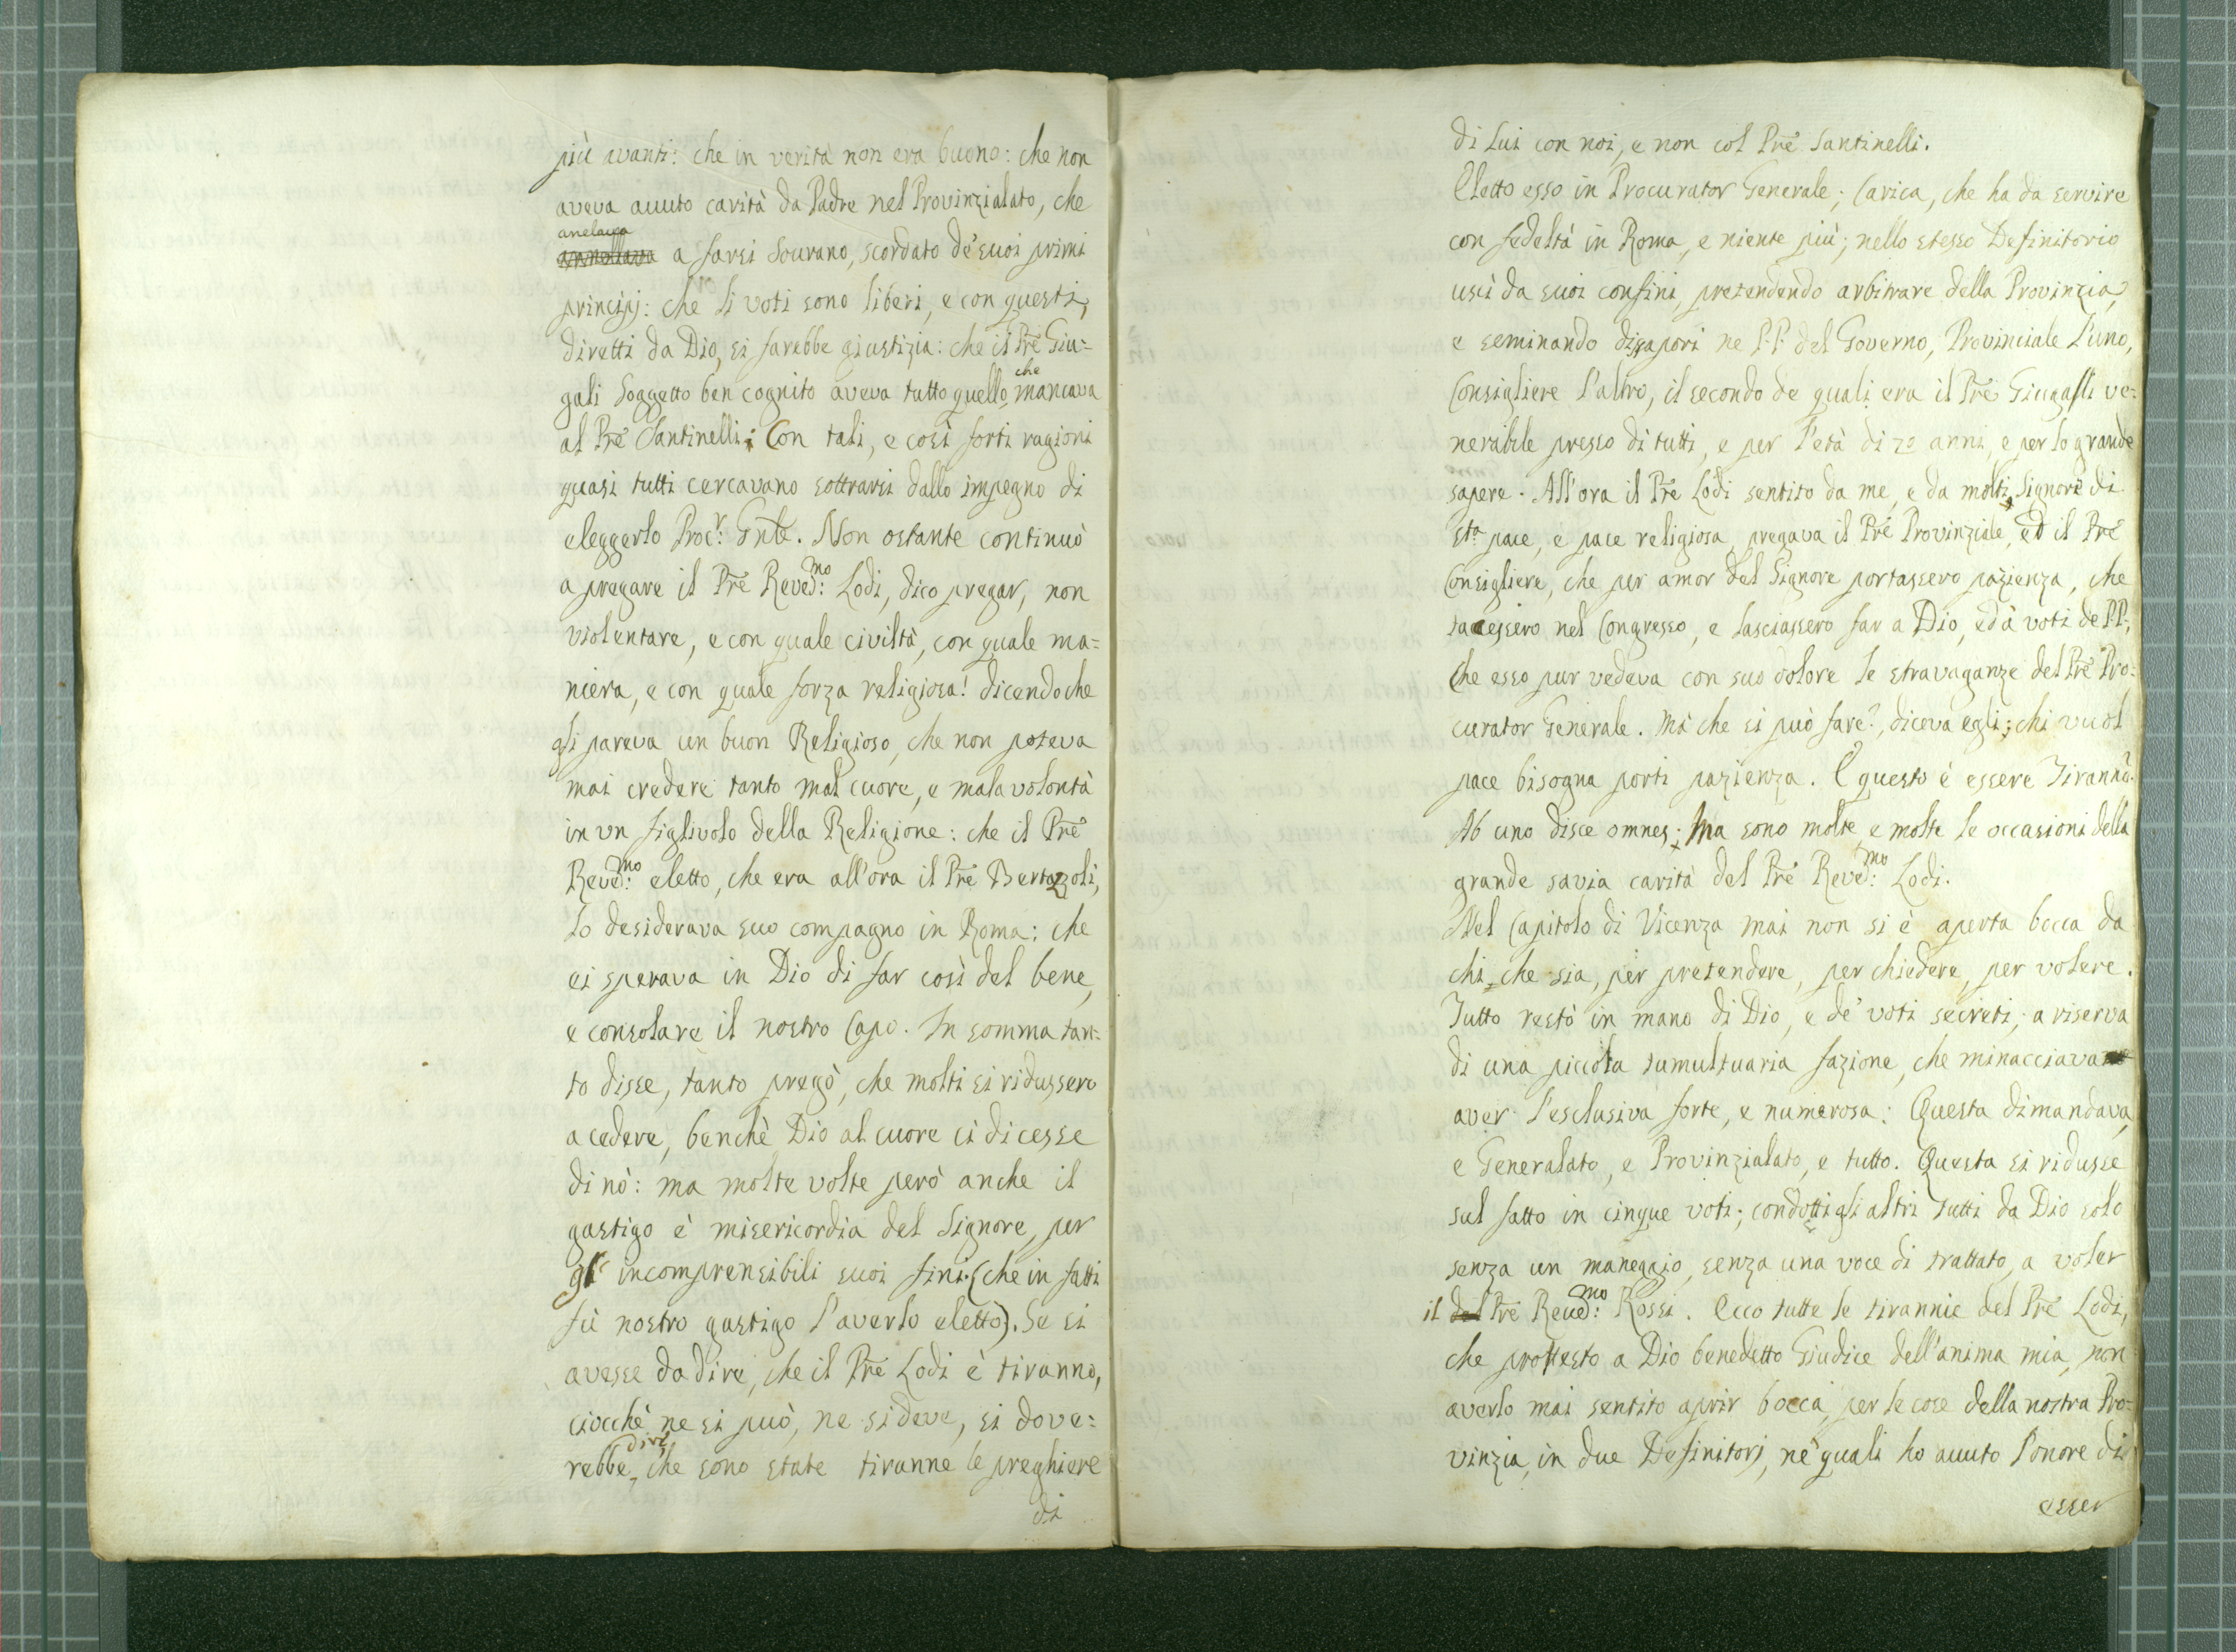 più avanti: che in verità non era buono: che non
aveva auuto carità da Padre nel Provinzialato, che
anelaua
annellava a farsi Sourano, scordato de' suoi primi
principj: che li voti sono liberi, e con questi,
diretti da Dio, si farebbe giustizia: che il Pre Giu=
gali Soggetto ben cognito aveva tutto quello, che mancava
al Pre Santinelli; Con tali, e così forti ragioni
quasi tutti cercavano sottrarsi dallo impegno di
eleggerlo Procr: Gnle. Non ostante continuò
a pregare il Pre Reved:mo Lodi, dico pregar, non
violentare, e con quale civiltà, con quale ma=
niera, e con quale forza religiosa! dicendo che
gli pareva un buon Religioso, che non poteva
mai credere tanto mal cuore, e mala volontà
in vn figlivolo della Religione: che il Pre
Reved:mo eletto, che era all'ora il Pre Bertazzoli,
lo desiderava suo compagno in Roma: che
ei sperava in Dio di far così del bene,
e consolare il nostro Capo. In somma tan=
to disse, tanto pregò, che molti si ridussero
a cedere, benchè Dio al cuore ci dicesse
di nò: ma molte volte però anche il
gastigo è misericordia del Signore, per
gl' incomprensibili suoi fini. (che in fatti
fù nostro gastigo l'averlo eletto). Se si
avesse da dire, che il Pre Lodi è tiranno,
ciocchè ne si può, ne si deve, si dove=
rebbe dire, che sono state tiranne le preghiere
di
di Lui con noi, e non col Pre Santinelli.
Eletto esso in Procurator Generale; Carica, che ha da servire
con fedeltà in Roma, e niente più; nello stesso Definitorio
uscì da suoi confini, pretendendo arbitrare della Provinzia,
e seminando dissapori ne P.P. del Governo, Provinciale l'uno,
Consigliere l'altro, il secondo de quali era il Pre Giugalli ve=
nerabile presso di tutti, e per l'età di 70 anni, e per lo grande
sapere. All'ora il Pre Lodi sentito da me, e da molti, Signore di
sta pace, e pace religiosa, pregava il Pre Provinziale, ed il Pre
Consigliere, che per amor del Signore portassero pazienza, che
tacessero nel Congresso, e lasciassero far a Dio, ed à voti de P.P.,
Che esso pur vedeva con suo dolore le stravaganze del Pre Pro=
curator Generale. Mà che si può fare?, diceva egli; chi vuol
pace bisogna porti pazienza. E questo è essere Tiranno.
Ab uno disce omnes; Ma sono molte, e molte le occasioni della
grande savia carità del Pre Reved:mo Lodi.
Nel Capitolo di Vicenza mai non si è aperta bocca da
chi che sia, per pretendere, per chiedere, per volere.
Tutto restò in mano di Dio, e de' voti secreti; a riserva
di una piccola tumultuaria fazione, che minacciava
aver l'esclusiva forte, e numerosa: Questa dimandava,
e Generalato, e Provinzialato, e tutto. Questa si ridusse
sul fatto in cinque voti; condotti gli altri tutti da Dio solo
senza un maneggio, senza una voce di trattato, a voler
il del Pre Reued:mo Rossi. Ecco tutte le tirannie del Pre Lodi,
che protesto a Dio benedetto Giudice dell'anima mia, non
averlo mai sentito aprir bocca, per le cose della nostra Pro=
vinzia, in due Definitorj, ne' quali ho auuto l'onore di
esser